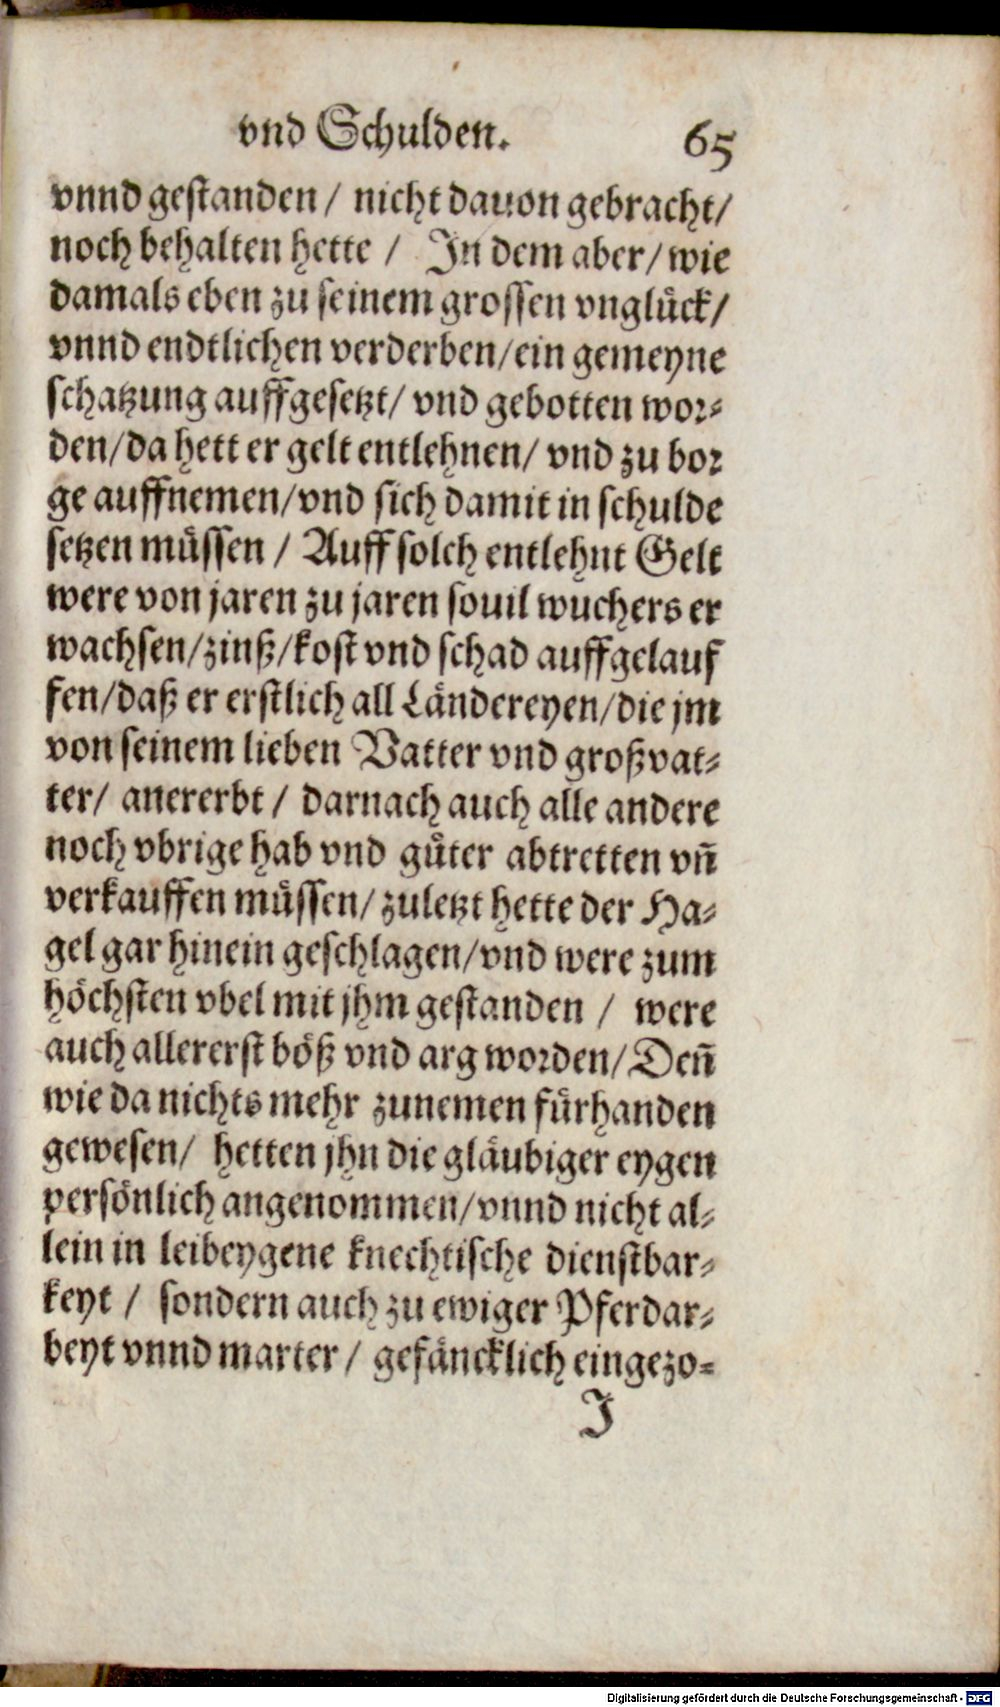 vnd Schulden. 65
vnnd gestanden / nicht dauon gebracht/
noch behalten hette / In dem aber/ wie
damals eben zu seinem grossen vnglück/
vnnd endtlichen verderben/ein gemeyne
schatzung auffgesetzt/ vnd gebotten wor-
den/da hett er gelt entlehnen/ vnd zu bor
ge auffnemen/vnd sich damit in schulde
setzen müssen / Auff solch entlehnt Gelt
were von jaren zu jaren souil wuchers er
wachsen/zinß/kost vnd schad auffgelauf
fen/daß er erstlich all Ländereyen/die jm
von seinem lieben Vatter vnd großvat-
ter/ anererbt / darnach auch alle andere
noch vbrige hab vnd güter abtretten vñ
verkauffen müssen/ zuletzt hette der Ha-
gel gar hinein geschlagen/vnd were zum
höchsten vbel mit jhm gestanden / were
auch allererst böß vnd arg worden/ Deñ
wie da nichts mehr zunemen fürhanden
gewesen/ hetten jhn die gläubiger eygen
persönlich angenommen/vnnd nicht al-
lein in leibeygene knechtische dienstbar-
keyt / sondern auch zu ewiger Pferdar-
beyt vnnd marter / gefäncklich eingezo-
J
Digitalisierung gefördert durch die Deutsche Forschungsgemeinschaft - DFG